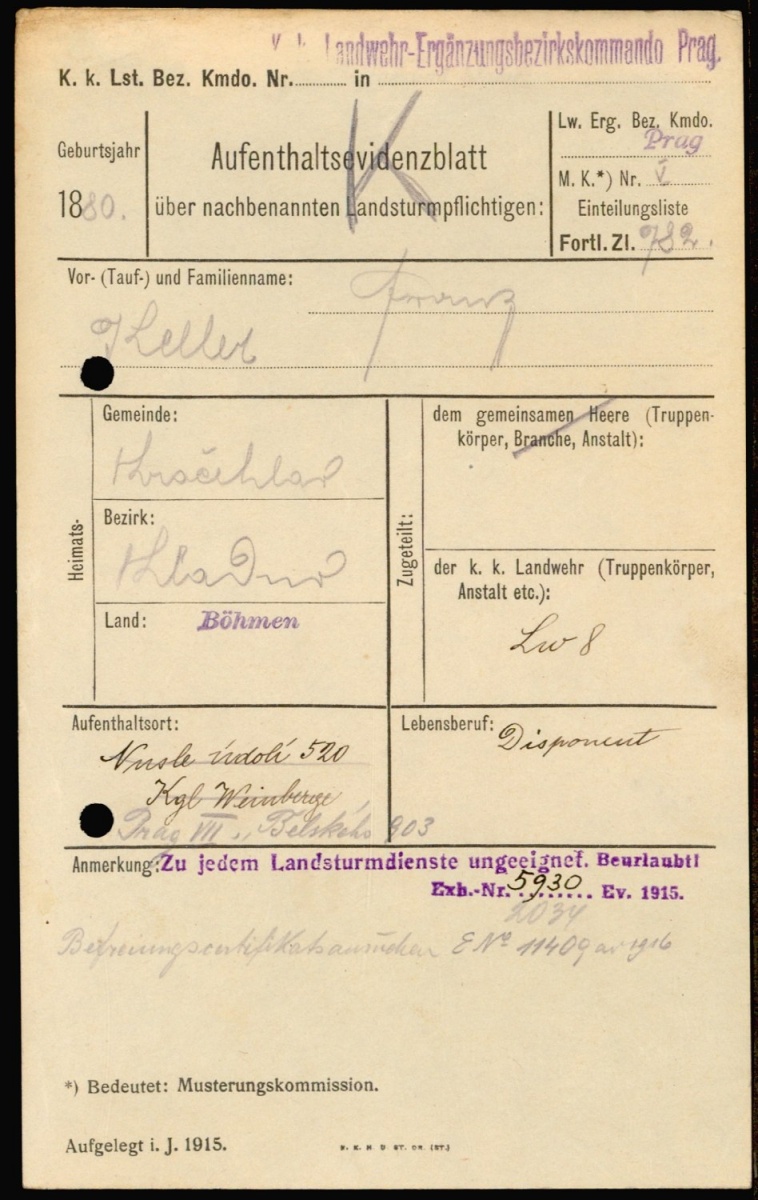 K. k. Landwehr-Ergänzungsbezirkskommando Prag.
K. k. Lst. Bez. Kmdo. Nr. in
Geburtsjahr
1880.
Aufenthaltsevidenzblatt
über nachbenannten Landsturmpflichtigen:
K
Lw. Erg. Bez. Kmdo.
Prag
M. K.*) Nr. V
Einteilungsliste
Fortl. Zl. 782.
Vor- (Tauf-) und Familienname:
Franz
Keller
Heimats-
Gemeinde:
Bezirk:
Kladno
Land: Böhmen
Zugeteilt:
dem gemeinsamen Heere (Truppen-
körper, Branche, Anstalt):
der k. k. Landwehr (Truppenkörper,
Anstalt etc.):
Lw 8
Aufenthaltsort:
Nusle údolí 520
Kgl Weinberge
Prag VII., Belského 903
Lebensberuf:
Disponent
Anmerkung: Zu jedem Landsturmdienste ungeeignet. Beurlaubt!
Exh.-Nr. 5930 Ev. 1915.
2034
Befreiungscertifikatsansuchen E Nº 11409 1916
*) Bedeutet: Musterungskommission.
Aufgelegt i. J. 1915.